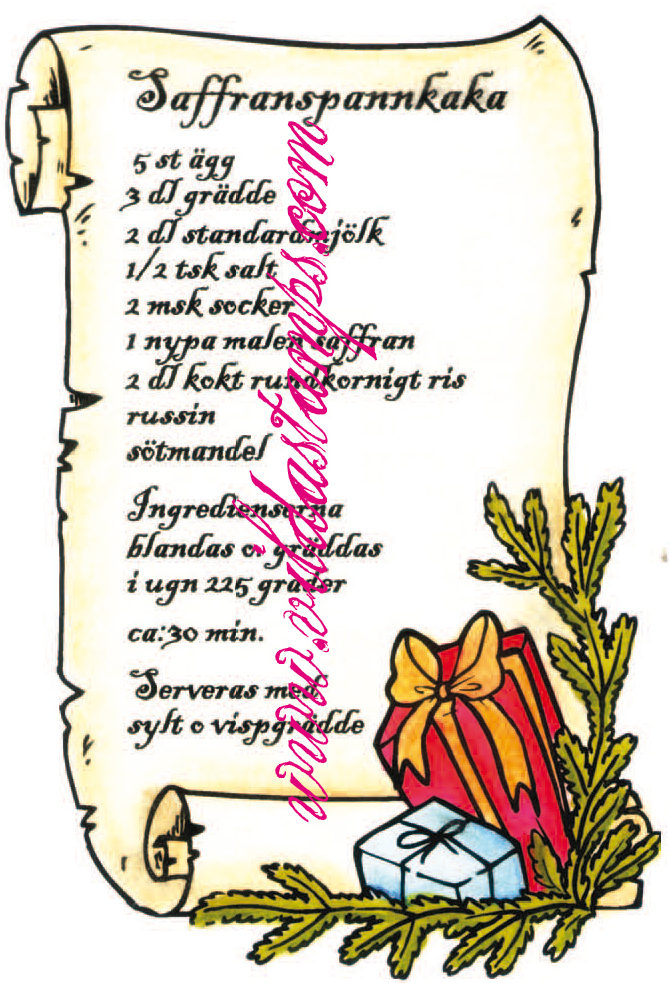 Saffranspannkaka
5 st ägg
3 dl grädde
2 dl standardmjölk
1/2 tsk salt
2 msk socker
1 nypa malen saffran
2 dl kokt rundkornigt ris
russin
sötmandel
Ingredienserna
blandas o gräddas
i ugn 225 grader
ca:30 min.
Serveras med
sylt o vispgrädde
www.vildastamps.com